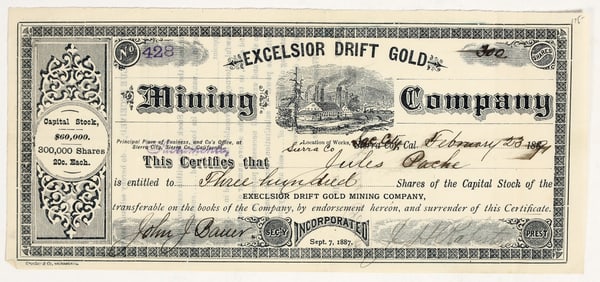 No 428
EXCELSIOR DRIFT GOLD
300
SHARES
Mining Company
Capital Stock,
$60,000.
300,000 Shares
20c. Each.
Principal Place of Business, and Co's Office, at
Sierra City, Sierra Co., California.
Location of Works,
Sierra Co.
Cal. February 23 18
This Certifies that Jules
is entitled to Three hundred Shares of the Capital Stock of the
EXCELSIOR DRIFT GOLD MINING COMPANY,
transferable on the books of the Company, by endorsement hereon, and surrender of this Certificate.
John J Bauer SEC'Y
INCORPORATED
Sept. 7, 1887.
PREST